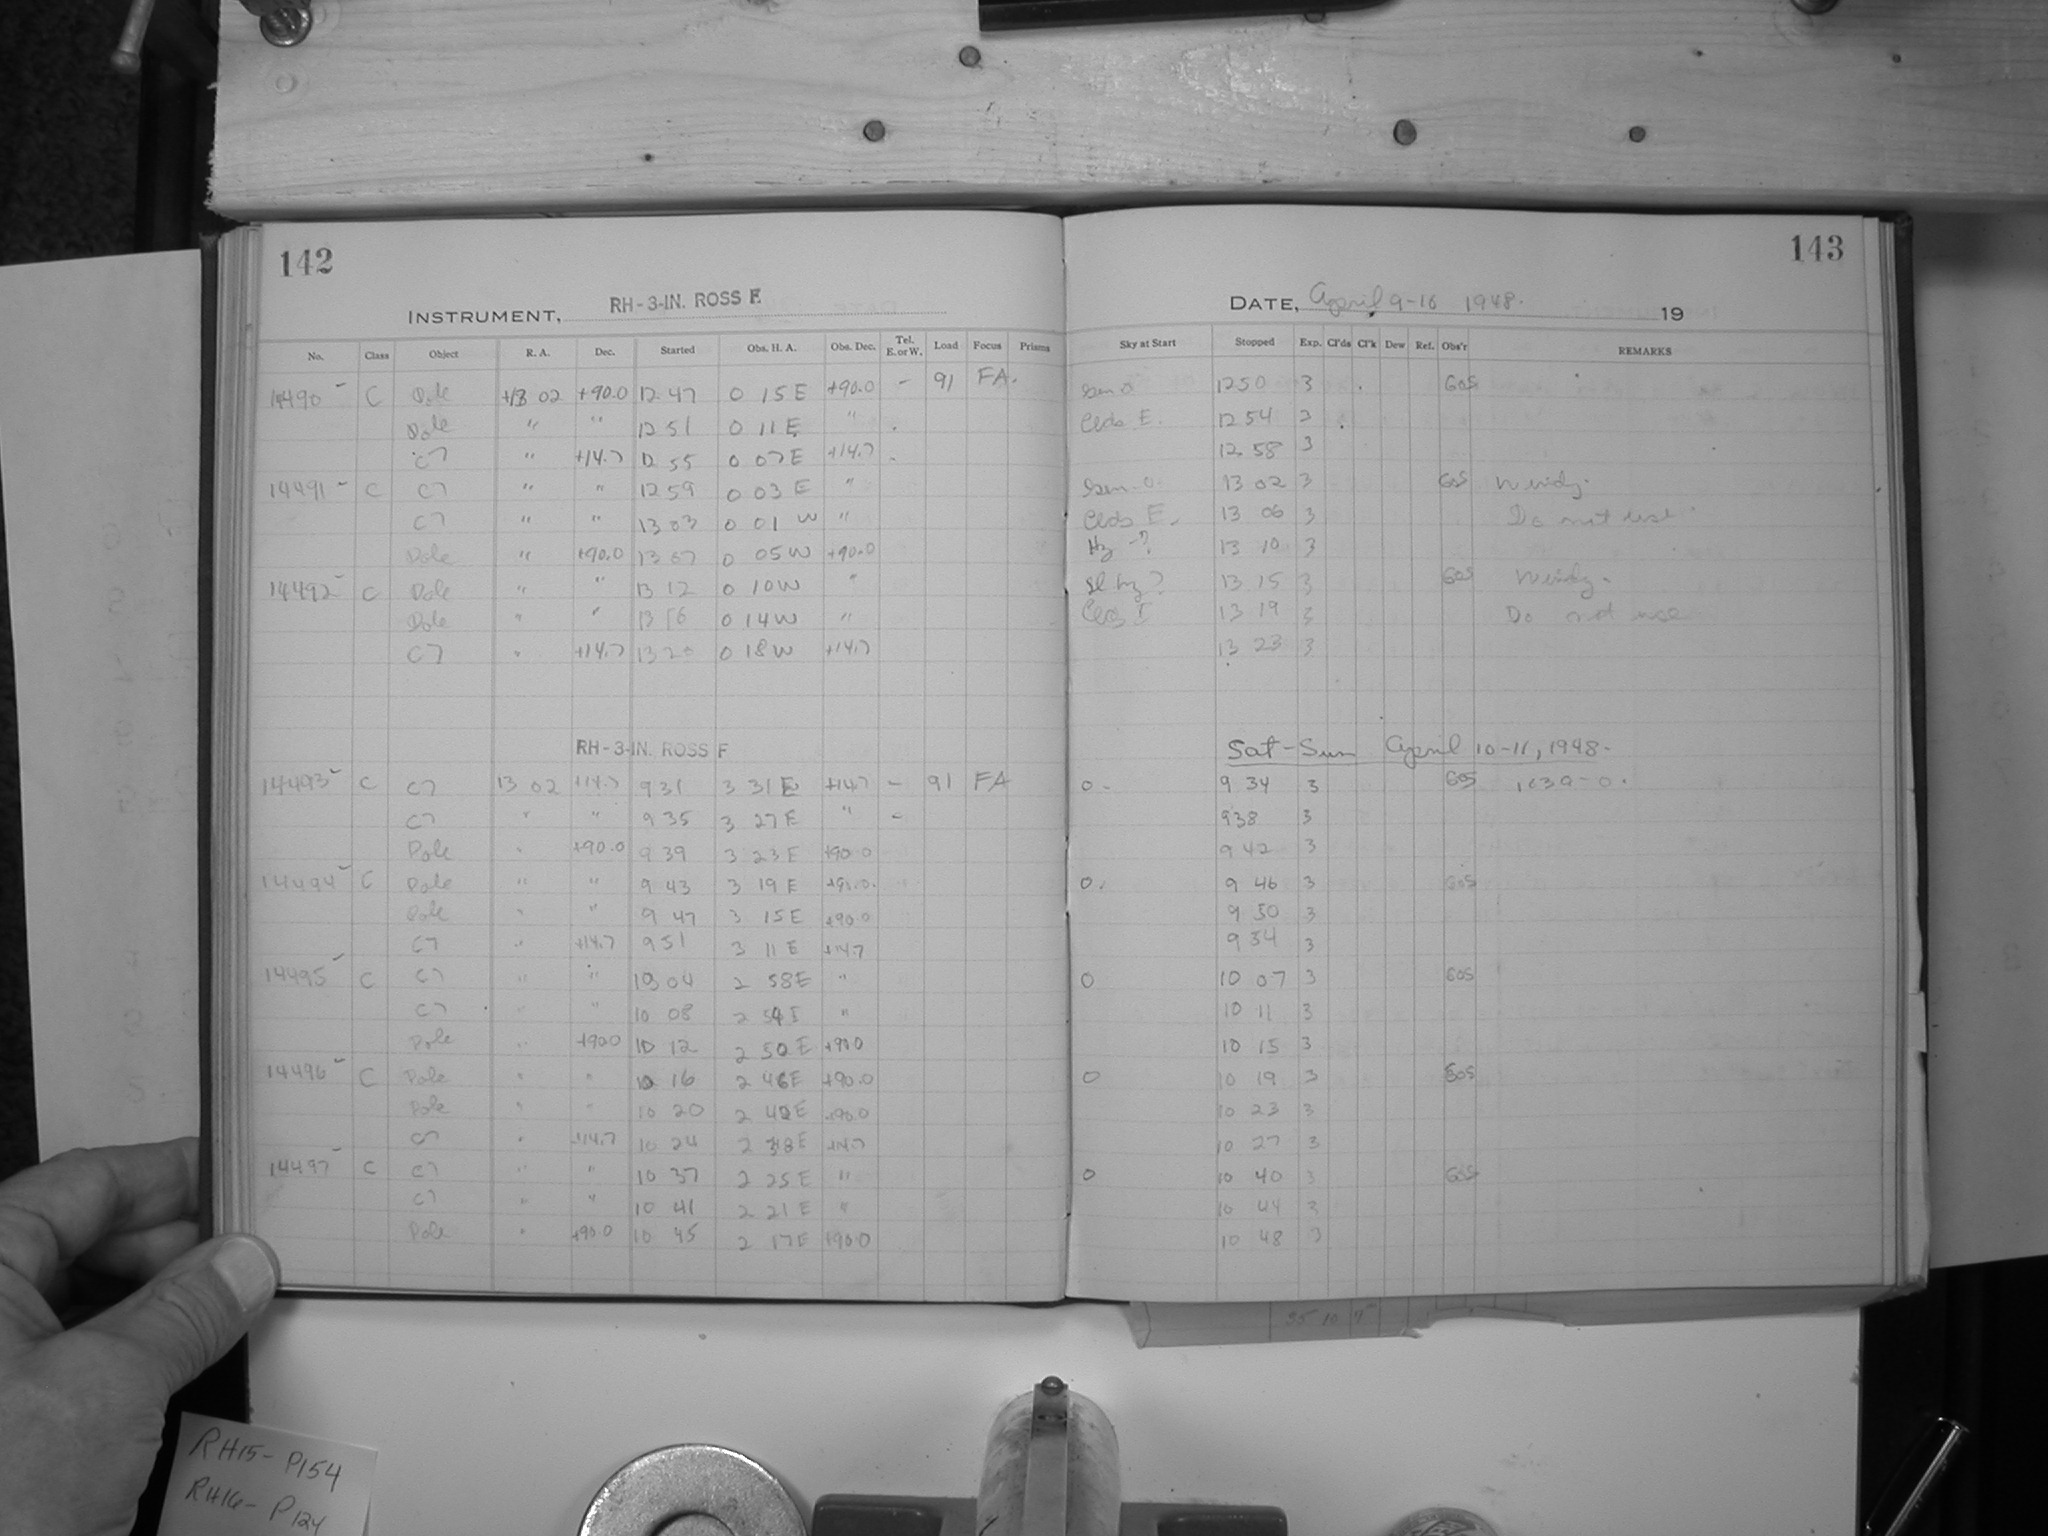 142
INSTRUMENT, RH-3-IN. ROSS F
No. Class Object R. A. Dec. Started Obs. H. A. Obs. Dec. Tel. E. or W. Load Focus Prisms
14490 C Pole 13 02 +90.0 12 47 0 15 E +90.0 - 91 FA.
Pole " " 12 51 0 11 E "
C7 " +14.7 12 55 0 07 E +14.7
14491 C C7 " " 12 59 0 03 E "
C7 " " 13 03 0 01 W "
Pole " +90.0 13 07 0 05 W +90.0
14492 C Pole " " 13 12 0 10 W "
Pole " " 13 16 0 14 W "
C7 " +14.7 13 20 0 18 W +14.7
RH-3-IN. ROSS F
14493 C C7 13 02 +14.7 9 31 3 31 E +14.7 - 91 FA
C7 " " 9 35 3 27 E " -
Pole " +90.0 9 39 3 23 E +90.0
14494 C Pole " " 9 43 3 19 E +90.0
Pole " " 9 47 3 15 E +90.0
C7 " +14.7 9 51 3 11 E +14.7
14495 C C7 " " 10 04 2 58 E "
C7 " " 10 08 2 54 E "
Pole " +90.0 10 12 2 50 E +90.0
14496 C Pole " " 10 16 2 46 E +90.0
Pole " " 10 20 2 42 E +90.0
C7 " +14.7 10 24 2 38 E +14.7
14497 C C7 " " 10 37 2 25 E "
C7 " " 10 41 2 21 E "
Pole " +90.0 10 45 2 17 E +90.0
143
DATE, April 9-10 1948. 19
Sky at Start Stopped Exp. Cl'ds Cl'k Dew Ref. Obs'r REMARKS
12 50 3 GOS
Clds E. 12 54 3
12 58 3
13 02 3 GOS Windy.
Clds E. 13 06 3 Do not use
Hz -? 13 10 3
Sl hz? 13 15 3 GOS Windy.
Clds E 13 19 3 Do not use
13 23 3
Sat-Sun April 10-11, 1948.
0 - 9 34 3 GOS
9 38 3
9 42 3
0. 9 46 3 GOS
9 50 3
9 54 3
0 10 07 3 GOS
10 11 3
10 15 3
0 10 19 3 GOS
10 23 3
10 27 3
0 10 40 3 GOS
10 44 3
10 48 3
35 10 7
RH15- P154
RH16- P124